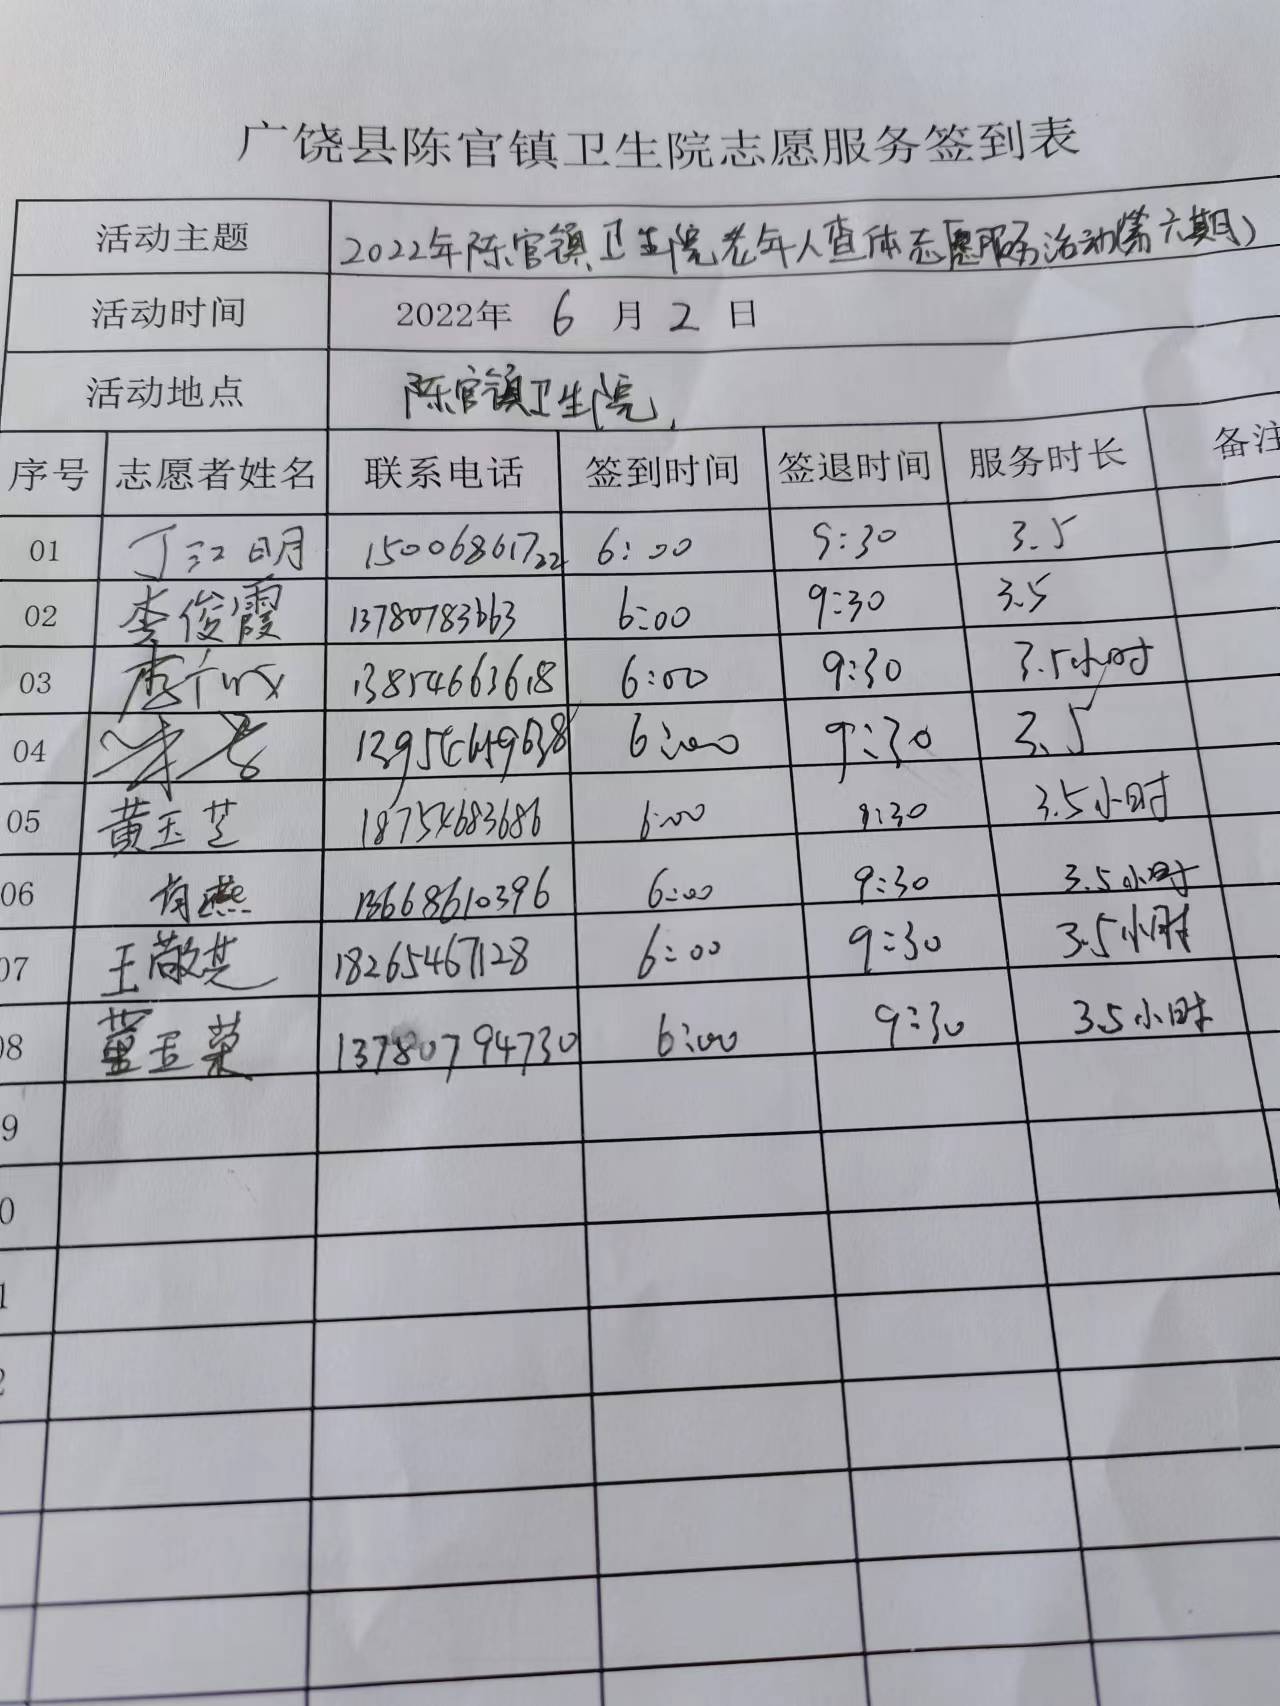 广饶县陈官镇卫生院志愿服务签到表
活动主题 2022年陈官镇卫生院老年人查体志愿服务活动(第六期)
活动时间 2022年 6 月 2 日
活动地点 陈官镇卫生院
序号 志愿者姓名 联系电话 签到时间 签退时间 服务时长 备注
01 丁江明 15006861722 6:00 9:30 3.5
02 李俊霞 13780783663 6:00 9:30 3.5
03 13854663618 6:00 9:30 3.5小时
04 6:00 9:30 3.5
05 黄玉芝 18754683686 6:00 9:30 3.5小时
06 肖燕 13668610396 6:00 9:30 3.5小时
07 王敬芝 18265467128 6:00 9:30 3.5小时
08 董玉荣 13780794730 6:00 9:30 3.5小时
9
0
1
2